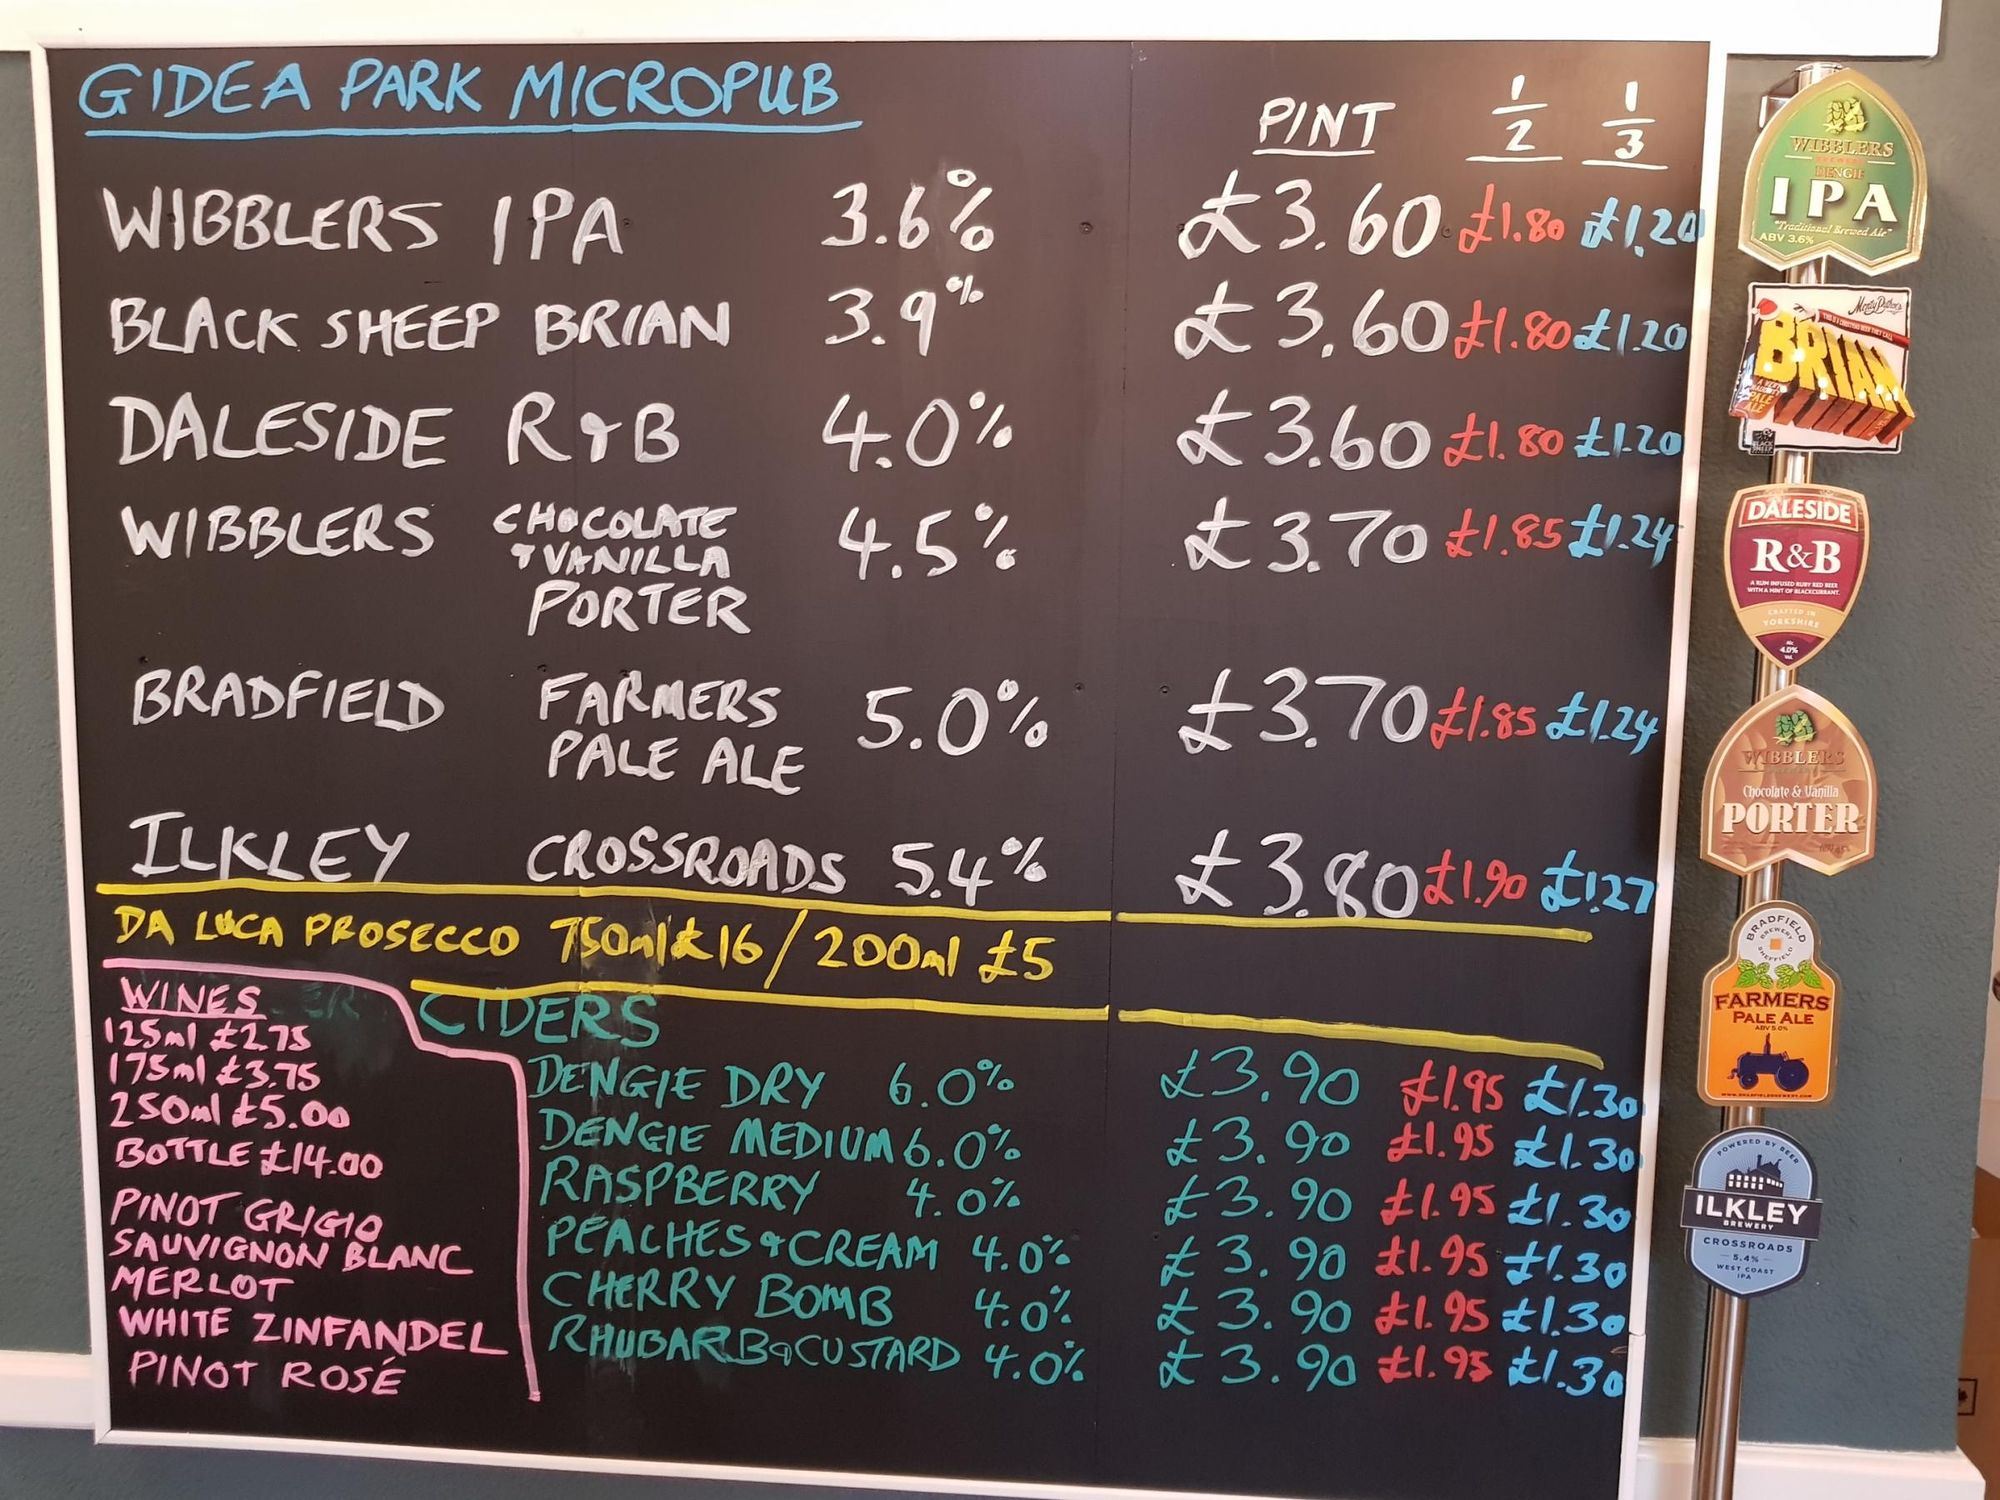 GIDEA PARK MICROPUB
PINT 1/2 1/3
WIBBLERS IPA 3.6% £3.60 £1.80 £1.20
BLACK SHEEP BRIAN 3.9% £3.60 £1.80 £1.20
DALESIDE R&B 4.0% £3.60 £1.80 £1.20
WIBBLERS CHOCOLATE 4.5% £3.70 £1.85 £1.24
& VANILLA
PORTER
BRADFIELD FARMERS 5.0% £3.70 £1.85 £1.24
PALE ALE
ILKLEY CROSSROADS 5.4% £3.80 £1.90 £1.27
DA LUCA PROSECCO 750ml £16 / 200ml £5
WINES
125ml £2.75
175ml £3.75
250ml £5.00
BOTTLE £14.00
PINOT GRIGIO
SAUVIGNON BLANC
MERLOT
WHITE ZINFANDEL
PINOT ROSÉ
CIDERS
DENGIE DRY 6.0% £3.90 £1.95 £1.30
DENGIE MEDIUM 6.0% £3.90 £1.95 £1.30
RASPBERRY 4.0% £3.90 £1.95 £1.30
PEACHES & CREAM 4.0% £3.90 £1.95 £1.30
CHERRY BOMB 4.0% £3.90 £1.95 £1.30
RHUBARB & CUSTARD 4.0% £3.90 £1.95 £1.30
WIBBLERS
BREWERY
DENGIE
IPA
"Traditional Brewed Ale"
ABV 3.6%
Monty Python's
BRIAN
PALE
ALE
BLACK
SHEEP
DALESIDE
R&B
A RUM INFUSED RUBY RED BEER
WITH A HINT OF BLACKCURRANT.
CRAFTED IN
YORKSHIRE
Alc
4.0%
Vol
WIBBLERS
Chocolate & Vanilla
PORTER
BRADFIELD
BREWERY
SHEFFIELD
FARMERS
PALE ALE
ABV 5.0%
WWW.BRADFIELDBREWERY.COM
POWERED BY BEER
ILKLEY
BREWERY
CROSSROADS
5.4%
WEST COAST
IPA